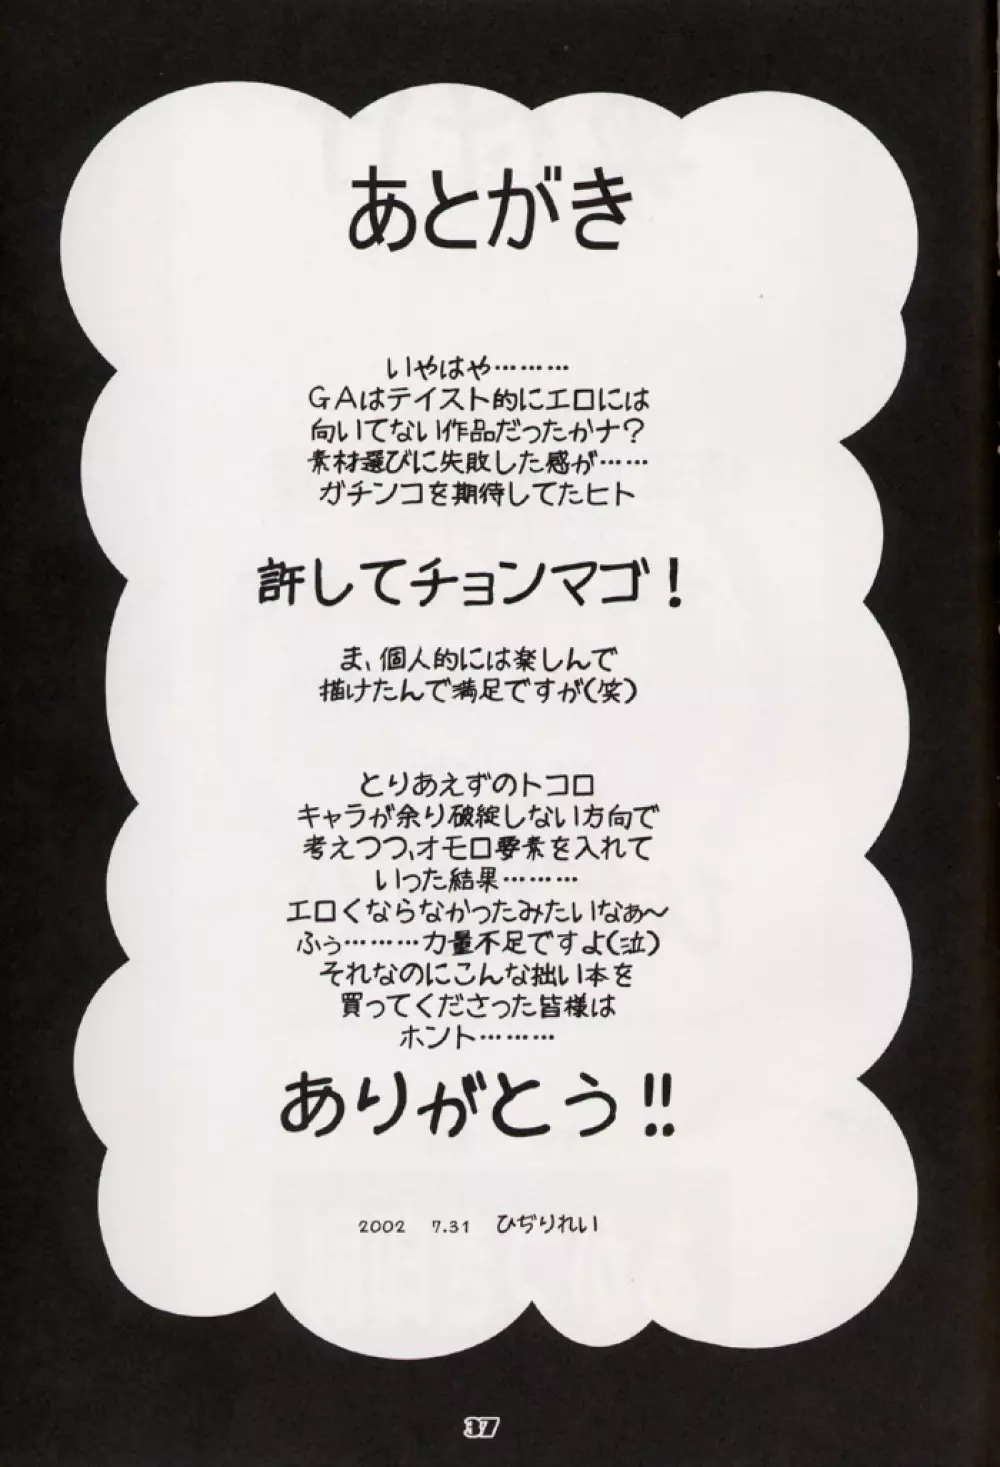 あとがき
いやはや………
GAはテイスト的にエロには
向いてない作品だったかナ?
素材選びに失敗した感が……
ガチンコを期待してたヒト
許してチョンマゴ!
ま、個人的には楽しんで
描けたんで満足ですが(笑)
とりあえずのトコロ
キャラが余り破綻しない方向で
考えつつ、オモロ要素を入れて
いった結果………
エロくならなかったみたいなぁ~
ふぅ………力量不足ですよ(泣)
それなのにこんな拙い本を
買ってくださった皆様は
ホント………
ありがとう!!
2002 7.31 ひぢりれい
37